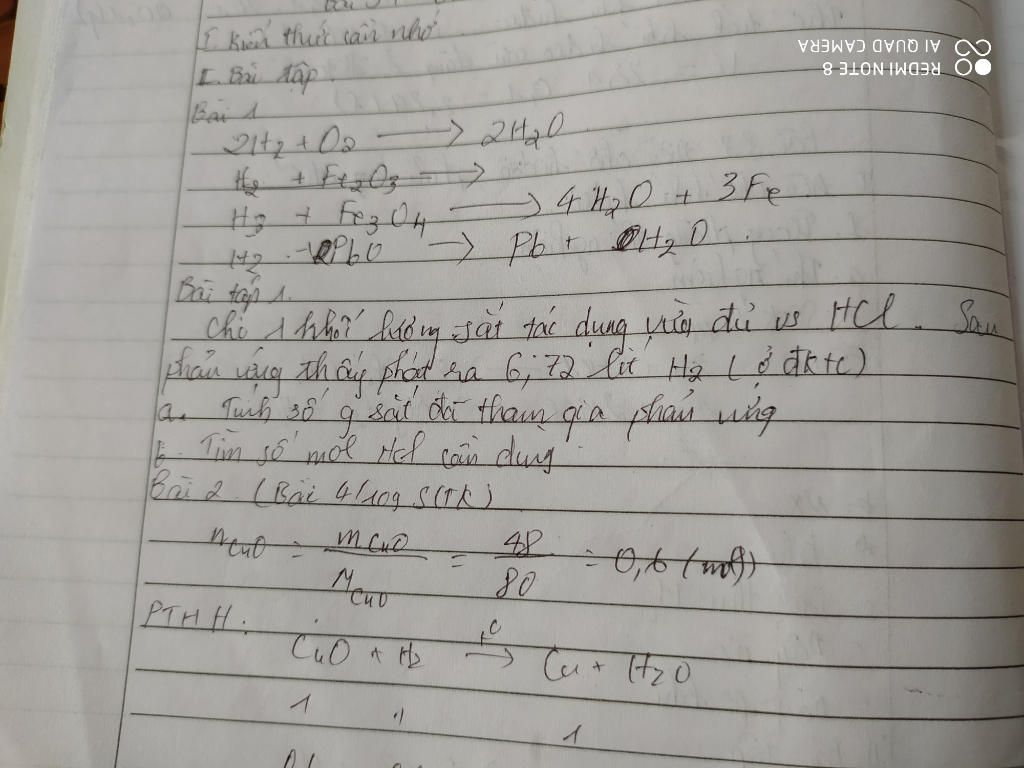 I. Kiến thức cần nhớ
I. Bài tập
Bài 1
2H2 + O2 → 2H2O
H2 + Fe2O3 →
H2 + Fe3O4 → 4H2O + 3Fe
H2 + PbO → Pb + H2O
Bài tập 1.
Cho 1 khối lượng sắt tác dụng vừa đủ vs HCl. Sau
phản ứng thấy phát ra 6,72 lít H2 (ở đktc)
a. Tính số g sắt đã tham gia phản ứng
b. Tìm số mol HCl cần dùng
Bài 2. (Bài 4/109 SGK)
nCuO = mCuO / MCuO = 48 / 80 = 0,6 (mol)
PTHH:
CuO + H2 →(t°) Cu + H2O
1 1 1
REDMI NOTE 8
AI QUAD CAMERA